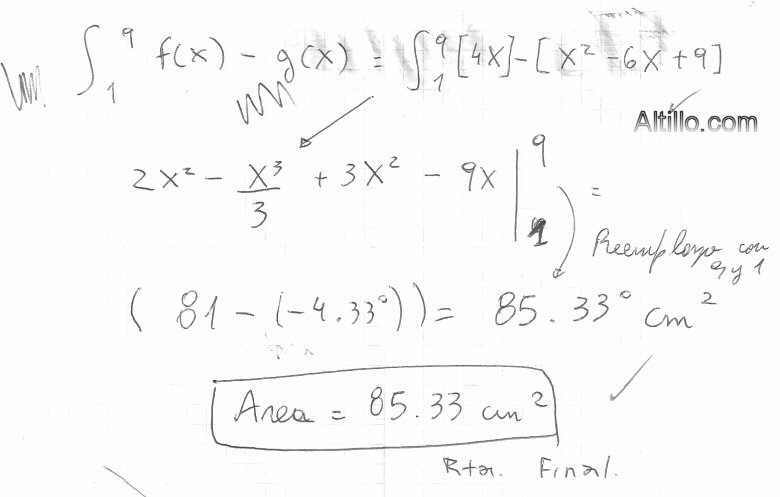 ∫₁⁹ f(x) - g(x) = ∫₁⁹ [4x] - [x² - 6x + 9]
Altillo.com
2x² - x³/3 + 3x² - 9x |₁⁹ =
Reemplazo con
9 y 1
(81 - (-4.33°)) = 85.33° cm²
Area = 85.33 cm²
Rta. Final.